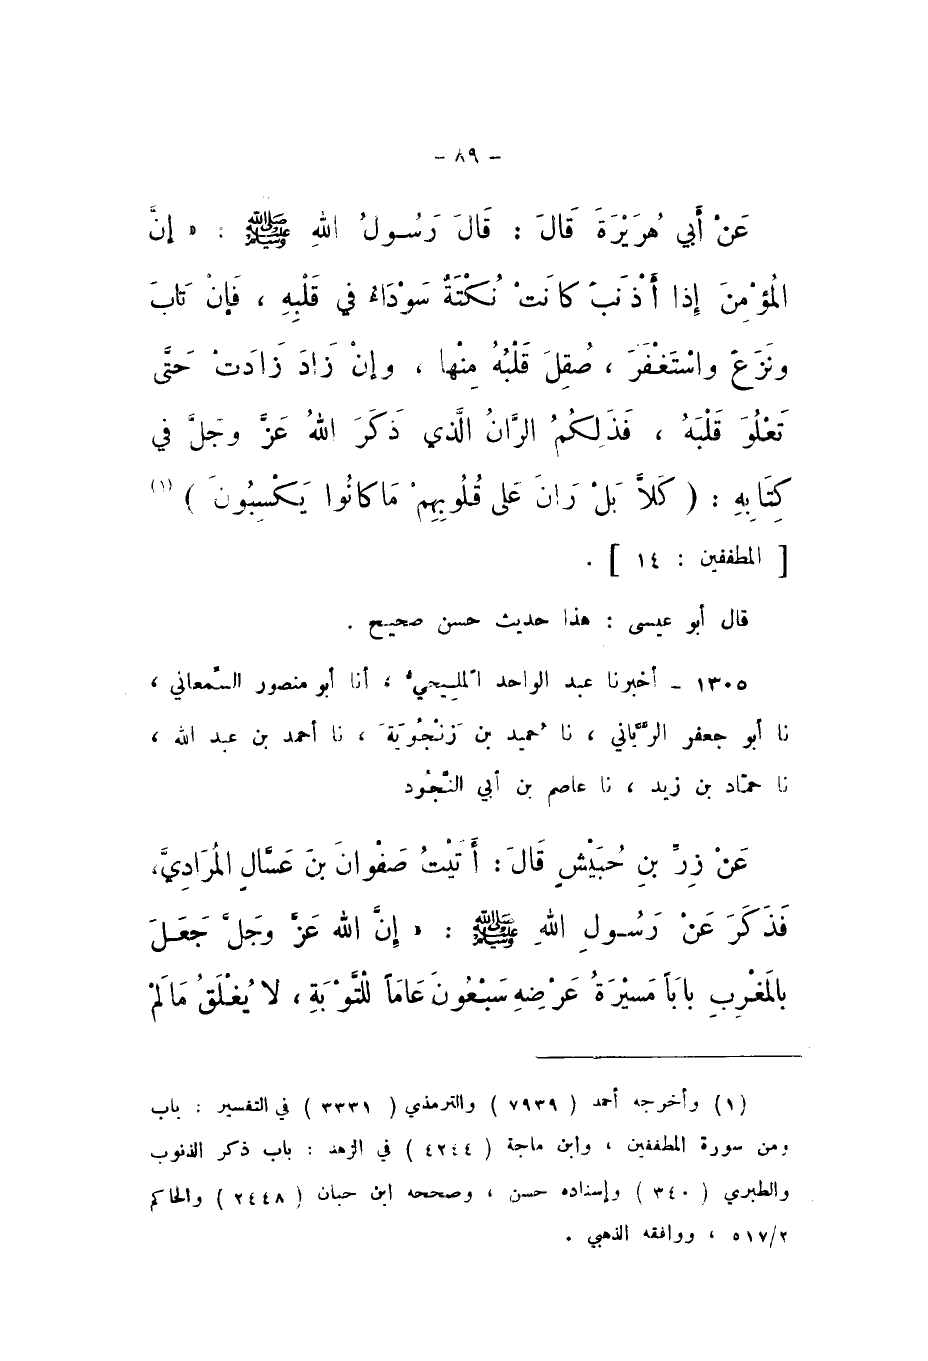 - ٨٩ -
عَنْ أَبي هُرَيْرَةَ قَالَ : قَالَ رَسُولُ اللهِ ﷺ : « إنَّ
المُؤْمِنَ إذا أَذْنَبَ كانَتْ نُكْتَةٌ سَوْدَاءُ في قَلْبِهِ ، فَإنْ تَابَ
ونَزَعَ واسْتَغْفَرَ ، صُقِلَ قَلْبُهُ مِنْها ، وإنْ زَادَ زَادَتْ حَتَّى
تَعْلُوَ قَلْبَهُ ، فَذَلِكُمُ الرَّانُ الَّذي ذَكَرَ اللهُ عَزَّ وجَلَّ في
كِتَابِهِ : ( كَلاَّ بَلْ رَانَ عَلى قُلُوبِهِمْ مَا كانُوا يَكْسِبُونَ ) (١)
[ المطففين : ١٤ ] .
قال أبو عيسى : هذا حديث حسن صحيح .
١٣٠٥ ـ أخبرنا عبد الواحد المَليحيُّ ، أنا أبو منصور السَّمعاني ،
نا أبو جعفر الرَّيَّاني ، نا حُميد بن زَنْجُوَيَةَ ، نا أحمد بن عبد الله ،
نا حمّاد بن زيد ، نا عاصم بن أبي النَّجُود
عَنْ زِرِّ بنِ حُبَيْشٍ قَالَ : أَتَيْتُ صَفْوانَ بنَ عَسَّالٍ المُرَادِيَّ،
فَذَكَرَ عَنْ رَسُولِ اللهِ ﷺ : « إنَّ الله عَزَّ وجَلَّ جَعَلَ
بالمَغْرِبِ بابَاً مَسيْرَةُ عَرْضِهِ سَبْعُونَ عَامَاً للْتَّوْبَةِ ، لا يُغْلَقُ مَا لَمْ
(١) وأخرجه أحمد ( ٧٩٣٩ ) والترمذي ( ٣٣٣١ ) في التفسير : باب
ومن سورة المطففين ، وابن ماجة ( ٤٢٤٤ ) في الزهد : باب ذكر الذنوب
والطبري ( ٣٤٠ ) وإسناده حسن ، وصححه ابن حبان ( ٢٤٤٨ ) والحاكم
٥١٧/٢ ، ووافقه الذهبي .